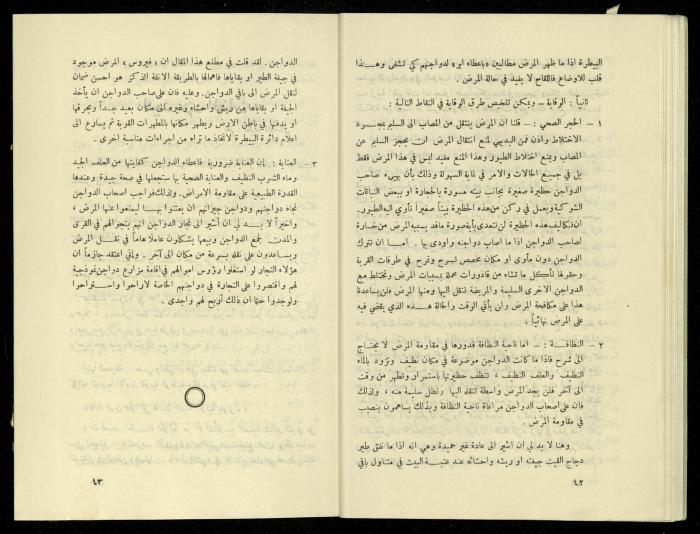 البيطرة اذا ما ظهر المرض مطالبين « باعطاء ابر » لدواجنهم كي تشفى وهــذا
قلب للاوضاع فاللقاح لا يفيد في حالة المرض .
ثانياً : الوقاية ــ ويمكن تلخيص طرق الوقاية في النقاط التالية :
١ ــ الحجر الصحي : ــ قلنا ان المرض ينتقل من المصاب الى السليم بمجــرد
الاختلاط واذن فمن البديهي لمنع انتقال المرض ان يحجز السليم عن
المصاب ويمنع اختلاط الطيور وهذا المنع مفيد ليس في هذا المرض فقط
بل في جميع الحالات والامر في غاية السهولة وذلك بأن يهيىء صاحب
الدواجن حظيرة صغيرة بجانب بيته مسورة بالحجارة او ببعض النباتات
الشوكية ويعمل في ركن من هذه الحظيرة بيتاً صغيراً تأوي اليه الطيور.
ان تكاليف هذه الحظيرة لن تتعدى بأية صورة ما قد يسببه المرض من خسارة
لصاحب الدواجن اذا ما اصاب دواجنه واودى بها . أمــا ان تترك
الدواجن دون مأوى او مكان مخصص تسرح وتمرح في طرقات القرية
وحقولها تأكل ما تشاء من قاذورات محملة بمسببات المرض وتختلط مع
الدواجن الاخرى السليمة والمريضة لتنقل اليها ومنها المرض فلن يساعدنا
هذا على مكافحة المرض ولن يأتي الوقت والحالة هــذه الذي يقضي فيه
على المرض نهائياً .
٢ ــ النظافــة : ــ اما ناحية النظافة فدورها في مقاومة المرض لا يحتــاج
الى شرح فاذا ما كانت الدواجن موضوعة في مكان نظيف وتزود بالماء
النظيف والعلف النظيف ، تنظف حظيرتها باستمرار وتطهر من وقت
الى آخر فلن يجد المرض واسطة لتنقله اليها وتظل سليمة منه ، ولذلك
فان على اصحاب الدواجن مراعاة ناحية النظافة وبذلك يساهمون بنصيب
في مقاومة المرض .
وهنا لا بد لي ان اشير الى عادة غير حميدة وهي انه اذا ما نفق طير
دجاج القيت جيفته او ريشه واحشائه عند عتبة البيت في متناول باقي
٤٢
الدواجن . لقد قلت في مطلع هذا المقال ان « فيروس » المرض موجود
في جيفة الطير او بقاياها فاهمالها بالطريقة الانفة الذكر هو احسن ضمان
لنقل المرض الى باقي الدواجن . وعليه فان على صاحب الدواجن ان يأخذ
الجيفة او بقاياها من ريش واحشاء وغيره الى مكان بعيد جــداً ويحرقها
او يدفنها في باطن الارض ويطهر مكانها بالمطهرات القوية ثم يسارع الى
اعلام دائرة البيطرة لاتخاذ ما تراه من اجراءات مناسبة اخرى .
٣ ــ العناية : إن العناية ضرورية فاعطاء الدواجن كفايتها من العلف الجيد
وماء الشرب النظيف والعناية الصحية بها ستجعلها في صحة جيدة وعندها
القدرة الطبيعية على مقاومة الامراض . ولذلك فواجب اصحاب الدواجن
تجاه دواجنهم ودواجن جيرانهم ان يعتنوا بهــا ليمنعوا عنها المرض ،
واخيراً لا بــد لي أن أشير الى تجار الدواجن انهم بتجوالهم في القرى
والمدن لجمع الدواجن وبيعها يشكلون عاملاً هاماً في نقــل المرض
ويساعدون على نقله بسرعة من مكان الى آخر . وإني اعتقد جازماً أن
هؤلاء التجار لو استغلوا رؤوس اموالهم في اقامة مزارع دواجن نموذجية
لهم واقتصروا على التجارة في دواجنهم الخاصة لاراحوا واستراحوا
ولوجدوا حتماً ان ذلك أربح لهم واجدى .
٤٣